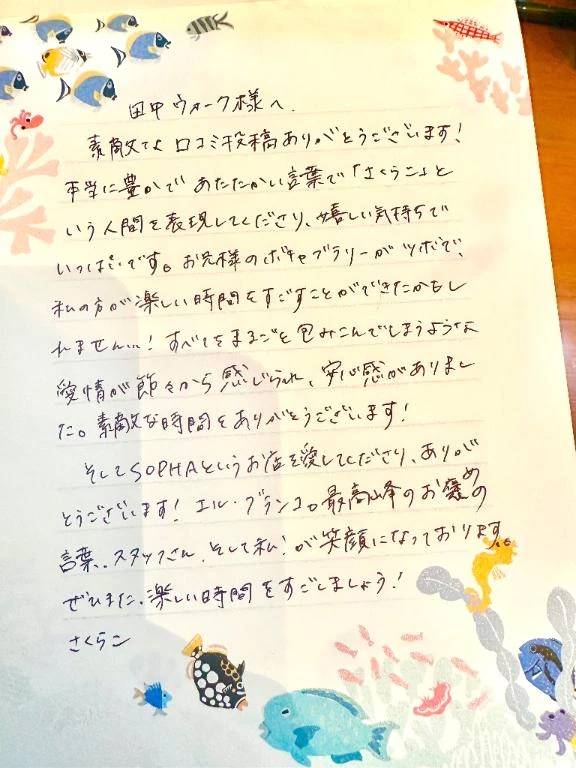 田中ウォーク様へ.
素敵な口コミ投稿ありがとうございます!
本当に豊かで あたたかい言葉で「さくらこ」と
いう人間を表現してくださり、嬉しい気持ちで
いっぱいです。お兄様のボキャブラリーがツボで、
私の方が楽しい時間をすごすことができたかもし
れません...! すべてをまるごと包みこんでしまうような
愛情が節々から感じられ、安心感がありまし
た。素敵な時間をありがとうございます!
そしてSOPHAというお店を愛してくださり、ありが
とうございます! エル・ブランコ。最高峰のお褒めの
言葉.. スタッフさん、そして私!が笑顔になっております。
ぜひまた、楽しい時間をすごしましょう!
さくらこ